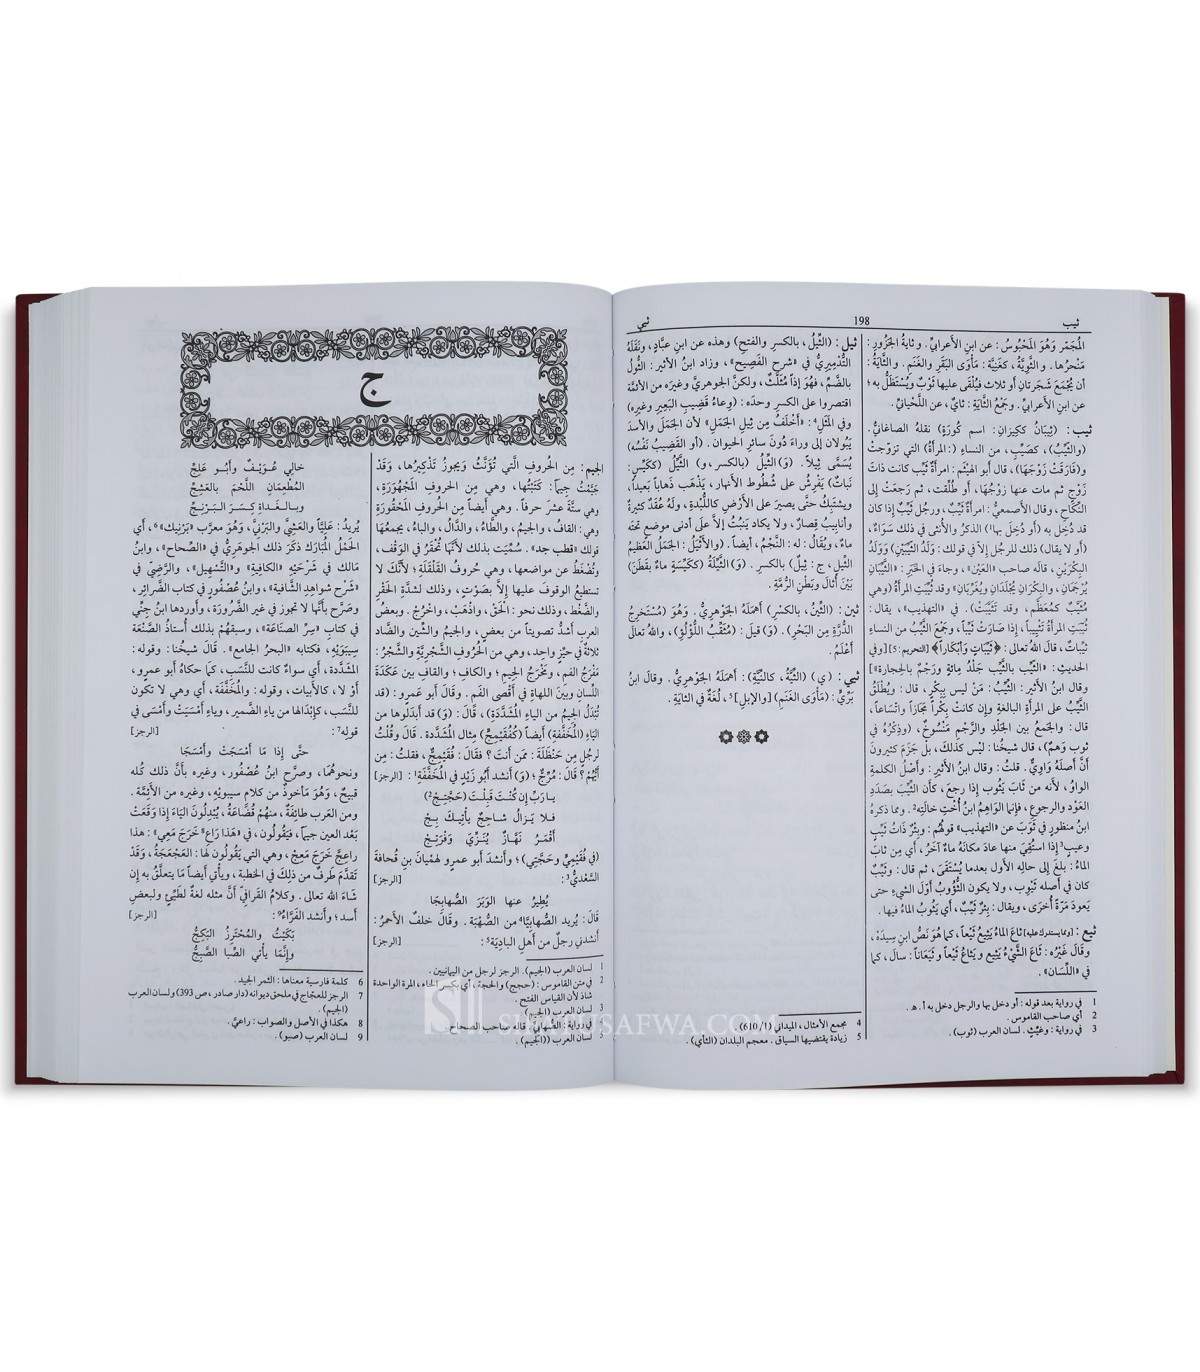 ثيب
198
ثيي
المُجَمَّر وَهُوَ المَحْبُوسُ : عن ابنِ الأعرابيِّ . وثايةُ الجَزُورِ :
مَنْحَرُها . والثَّوِيَّةُ ، كغَنِيَّة : مَأوَى البَقَرِ والغَنَم . والثَّايَةُ :
أن يُجْمَعَ شَجَرتانِ أو ثلاث فيُلْقَى عليها ثَوْبٌ ويُسْتَظَلُّ به ؛
عن ابنِ الأعرابيِّ . وجَمْعُ الثَّايَةِ : ثايٌ ، عن اللَّحْيانيِّ .
ثيب : (ثِيبَانُ ككِيزَانٍ : اسم كُورَةٍ) نقلهُ الصاغانيُّ .
(والثَّيِّبُ) ، كصَيِّبٍ ، من النساءِ (: المرأةُ) التي تزوجتْ
(وفَارَقَتْ زَوْجَهَا) ، قال أبو الهيْثم : امرأةٌ ثَيِّبٌ كانت ذاتَ
زَوْجٍ ثم مات عنها زوْجُهَا ، أو طُلِّقت ، ثم رجعَتْ إلى
النِّكَاحِ ، وقال الأصمعيُّ : امرأةٌ ثَيِّبٌ ، ورجُل ثَيِّبٌ إذا كان
قد دُخِل به (أو دُخِلَ بها¹) الذكرُ والأُنثى في ذلك سَوَاءٌ ،
(أو لا يقال) ذلك للرجُلِ إلاّ في قولك : وَلَدُ الثَّيِّبَيْنِ) وَوَلَدُ
البِكْرَيْنِ ، قاله صاحب «العَيْن» ، وجاء في الخَبَرِ : «الثَّيِّبَانِ
يُرْجَمَانِ ، والبِكْرَانِ يُجْلَدَانِ ويُغَرَّبَانِ» وقد ثُيِّبَتِ المرأةُ (وهي
مُثَيَّبٌ كمُعَظَّمٍ ، وقد تَثَيَّبَتْ) . في «التهذيب» ، يقال :
ثُيِّبَتِ المرأةُ تَثْيِيباً ، إذا صَارَتْ ثَيِّباً ، وجَمْعُ الثَّيِّبِ من النساءِ
ثيِّباتٌ ، قالَ اللهُ تعالى : ﴿ثَيِّبَاتٍ وَأَبْكَاراً﴾ [التحريم : 5] [وفي
الحديث : «الثَّيِّبُ بالثَّيِّبِ جَلْدُ مِائةٍ ورَجْمٌ بالحِجارة»]
وقال ابنُ الأثير : الثَّيِّبُ : مَنْ ليس بِبِكْرٍ ، قال : ويُطْلَقُ
الثَّيِّبُ على المرأةِ البالغةِ وإن كانتْ بِكْراً مَجَازاً واتِّسَاعاً ،
قال : والجَمعُ بين الجَلْدِ والرَّجْمِ مَنْسُوخٌ ، (وذِكْرُهُ في
ثوب وَهَمٌ) ، قال شيخُنا : ليْس كذلكَ ، بلْ جَزَمَ كثيرونَ
أنَّ أصلَهُ وَاوِيٌّ . قلتُ : وقال ابنُ الأثير : وأصْلُ الكلمةِ
الواوُ ، لأنه من ثَابَ يَثُوب إذا رجعَ ، كأن الثَّيِّبَ بصَدَدِ
العَوْد والرجوعِ ، فإنما الوَاهِمُ ابنُ أُخْتِ خالتِه² . وما ذكرهُ
ابنُ منظورٍ في ثَوَبَ عن «التهذيب» قولهُم : وبئرٌ ذَاتُ ثَيِّبٍ
وعيبٍ³ إذا استُقِيَ منها عادَ مكانَهُ ماءٌ آخرُ ، أي مِن ثَابَ
المَاءُ : بلغَ إلى حالِهِ الأول بعدما يُسْتَقَى ، ثم قال : وثَيِّبٌ
كان في أصلهِ ثَيْوِب ، ولا يكون الثُّؤُوبُ أوّل الشيءِ حتى
يَعودَ مَرّةً أُخرَى ، ويقال : بِئرٌ ثَيِّبٌ ، أي يَثُوبُ المَاءُ فيها .
ثيع : [ومما يستدرك عليه] ثَاعَ المَاءُ يَثِيعُ ثَيْعاً ، كما هُوَ نَصُّ ابنِ سِيدَه ،
وقالَ غَيْرُه : ثَاعَ الشَّيْءُ يَثِيعُ ويَثَاعُ ثَيْعاً وثَيَعَاناً : سالَ ، كما
في «اللِّسَان» .
1 في رواية بعد قوله : أو دخل بها والرجل دخل به أ . هـ .
2 أي صاحب القاموس .
3 في رواية : وغَيِّثٍ . لسان العرب (ثوب) .
ثيل : (الثِّيلُ ، بالكسرِ والفتحِ) وهذه عن ابنِ عبَّادٍ ، ونَقَلَهُ
التُّدْمِيرِيُّ في «شرحِ الفَصِيح» ، وزاد ابنُ الأثير : الثُّولُ
بالضَّمِّ ، فهُوَ إذاً مُثَلَّثٌ ، ولكنَّ الجوهريَّ وغيرَه من الأئمَّة
اقتصروا على الكسرِ وحدَه : (وِعاءُ قَضِيبِ البَعِيرِ وغيرِه)
وفي المَثَلِ⁴ : «أخْلَفُ مِن ثِيلِ الجَمَلِ» لأن الجَمَلَ والأسدَ
يَبُولان إلى وراءَ دُونَ سائرِ الحيوان . (أو القَضِيبُ نَفْسُه)
يُسَمَّى ثِيلاً . (وَ) الثِّيلُ (بالكسرِ ، و) الثَّيِّلُ (ككَيِّسٍ :
نَباتٌ) يَفْرِشُ على شُطُوطِ الأنهار ، يَذْهَب ذَهاباً بَعيداً ،
ويشتبِكُ حتَّى يصيرَ على الأرْضِ كاللُّبْدَةِ ، ولهُ عُقَدٌ كثيرةٌ
وأنابيبُ قِصارٌ ، ولا يكاد يَنبُتُ إلاَّ على أدنى موضعٍ تحتَه
ماءٌ ، ويُقالُ : له : النَّجْمُ ، أيضاً . (والأثْيَلُ : الجَمَلُ العظيمُ
الثِّيلِ ، ج : ثِيلٌ) بالكسرِ . (وَ) الثَّيِّلَةُ (ككَيِّسَةٍ ماءٌ بقَطَنَ)
بَيْنَ أُثالَ وبَطنِ الرُّمَّةِ .
ثين : (الثِّينُ ، بالكسرِ) أهْمَلَهُ الجَوْهريُّ . وَهُوَ (مُسْتَخرِجُ
الدُّرَّةِ مِن البَحْرِ) . (وَ) قيلَ : (مُثَقِّبُ اللُّؤْلُؤِ) ، واللهُ تعالَى
أعْلَمُ .
ثيي : (ي) (الثِّيَّةُ ، كالنِّيَّةِ) : أهمَلَهُ الجَوْهرِيُّ . وقالَ ابنُ
بَرِّيِّ : (مَأوَى الغَنَمِ) [والإبلِ]⁵ ، لُغَةٌ في الثايَةِ .
4 مجمع الأمثال ، الميداني (1/ 610) .
5 زيادة يقتضيها السياق . معجم البلدان (الثأي) .
ج
الجيم : مِن الحُروفِ الَّتي تُؤَنَّثُ وَيجوزُ تَذْكِيرُها ، وَقَدْ
جَيَّمْتُ جِيماً : كَتَبْتُها ، وهي مِن الحروفِ المَجْهُورَةِ ،
وهي ستَّةَ عشَرَ حرفاً . وهي أيضاً مِن الحُروفِ المَحْقُورَةِ
وهي : القافُ ، والجِيمُ ، والطَّاءُ ، والدَّالُ ، والباءُ ، يجمعُها
قولك «قطب جد» . سُمِّيَت بذلك لأنَّهَا تُحْقَرُ في الوَقْف ،
وتُضْغَطُ عن مواضعِها ، وهي حُروفُ القَلْقَلَةِ ؛ لأنَّكَ لا
تستطيعُ الوقوفَ عليها إلاَّ بصَوْتٍ ، وذلك لشدَّةِ الحَقْرِ
والضَّغْط ، وذلك نحو : الْحَقْ ، واذْهَبْ ، واخْرُجْ . وبعضُ
العرب أشدُّ تصويتاً من بعضٍ ، والجيمُ والشِّين والضَّاد
ثلاثةٌ في حيِّزٍ واحِدٍ ، وهي من الحُروفِ الشَّجْرِيَّةِ والشَّجْرُ :
مَفْرَجُ الفمِ ، ومَخْرَجُ الجِيمِ ؛ والكافِ ؛ والقافِ بين عَكَدَةِ
اللِّسان وبينَ اللهاةِ في أقصى الفَمِ . وقَالَ أبو عَمرٍو : (قد
تُبْدَلُ الجِيمُ من الياءِ المُشَدَّدة) ، قَالَ : (وَ) قد أبدَلوها من
اليَاءِ (المُخَفَّفةِ) أيضاً (كَفُقَيْمِجٍّ) مِثالُ المُشدَّدة . قَالَ وقُلْتُ
لرجُلٍ مِن حَنْظَلَةَ : ممّن أنت ؟ فقالَ : فُقَيْمِجٌّ ، فقلت : مِن
أيِّهُم ؟ قَالَ : مُرِّجٌّ ؛ (وَ) أنشد أبُو زَيْدٍ في المُخَفَّفَةِ¹ : [الرجز]
يارَبِّ إن كُنتَ قَبِلْتَ (حَجَّتِجْ²)
فلا يَزالُ شاحِجٌ يأتيكَ بِجْ
أقمَرُ نَهَّازٌ يُنَزِّي وَفْرَتِجْ
(في فُقَيْمِيٍّ وحَجَّتي) ؛ وأنشد أبو عمرٍو لهِمْيانَ بنِ قُحافةَ
السَّعْديُّ³ : [الرجز]
يُطِيرُ عنها الوَبَرَ الصُّهابِجَا
قَالَ : يُريد الصُّهَابِيَّا⁴ من الصُّهْبَة . وقَالَ خلفٌ الأحمرُ :
أنشدني رجلٌ من أهلِ البادِيَة⁵ : [الرجز]
1 لسان العرب (الجيم) . الرجز لرجل من اليمانيين .
2 في متن القاموس : (حجج) والحجة ، أي بكسر الحاء ، المرة الواحدة
شاذ لأن القياس الفتح .
3 لسان العرب (الجيم) .
4 في رواية : الصُّهابيَّ . قاله صاحب الصحاح .
5 لسان العرب ((الجيم)) .
خالي عُوَيْفٌ وأبُو عَلِجِّ
المُطْعِمَانِ اللَّحْمَ بالعَشِجِّ
وبالغَداةِ كِسَرَ البَرْنِجِّ
يُريدُ : عَلِيّاً والعَشِيَّ والبَرْنِيَّ ، وَهُوَ معرَّب «بَرْنيك»⁶ ، أي
الحَمْلُ المُبَارَك ذكرَ ذلك الجوهَريُّ في «الصِّحاح» ، وابنُ
مَالك في شَرْحَيْهِ «الكافِيةِ» و«التَّسْهيل» ، والرَّضِيُّ في
«شَرْح شواهِدِ الشَّافية» ، وابنُ عُصْفُورٍ في كتاب الضَّرائرِ ،
وصَرَّح بأنَّها لا تجوز في غير الضَّرُورَة ، وأوردها ابنُ جِنِّي
في كتاب «سِرِّ الصناعَة» ، وسبقَهُمْ بذلك أُستاذُ الصَّنْعَة
سيبَوَيْهِ ، فكتابه «البحرُ الجامع» . قَالَ شيخُنا : وقوله :
المشدَّدة ، أي سواءٌ كانت للنَّسَب ، كما حكاهُ أبو عمرٍو ،
أوْ لا ، كالأبيات ، وقوله : والمُخَفَّفَة ، أي وهي لا تكون
للنَّسَب ، كإبْدَالها من ياءِ الضَّمير ، وياءِ أمْسَيَتْ وأمْسَى في
قوله⁷ : [الرجز]
حتَّى إذا مَا أَمْسَجَتْ وأَمْسَجَا
ونحوهُمَا ، وصرَّح ابنُ عُصْفُور ، وغيره بأنَّ ذلك كُله
قبيحٌ ، وَهُوَ مَأخوذٌ من كلام سيبويْهِ ، وغيره من الأئمَّة .
ومن العرب طائِفَةٌ ، منهُمْ قُضَاعَةُ ، يُبْدِلُونَ اليَاءَ إذَا وَقَعَتْ
بَعْد العين جيماً ، فيَقُولُون ، في «هَذا رَاعٍ⁸ خَرَجَ مَعِي» : هذا
راعِجٌ خَرَجَ مَعِجْ ، وهي التي يَقُولُونَ لهَا : العَجْعَجَةُ ، وَقَدْ
تَقدَّمَ طَرفٌ من ذلِكَ في الخطبة ، ويأتي أيضاً مَا يتعلَّقُ به إن
شَاءَ الله تعالى . وكلامُ القرافِي أنَّ مثله لغةٌ لطَيِّئٍ ولبعضِ
أسد ؛ وأنشد الفَرَّاءُ⁹ : [الرجز]
بَكَيْتُ والمُحْتَرِزُ البَكِجّ
وإنَّمَا يأتي الصِّبا الصَّبِجُّ
6 كلمة فارسية معناها : الثمر الجيد .
7 الرجز للعجّاج في ملحق ديوانه (دار صادر ، ص 393) ولسان العرب
(الجيم) .
8 هكذا في الأصل والصواب : راعيٌّ .
9 لسان العرب (صبو) .